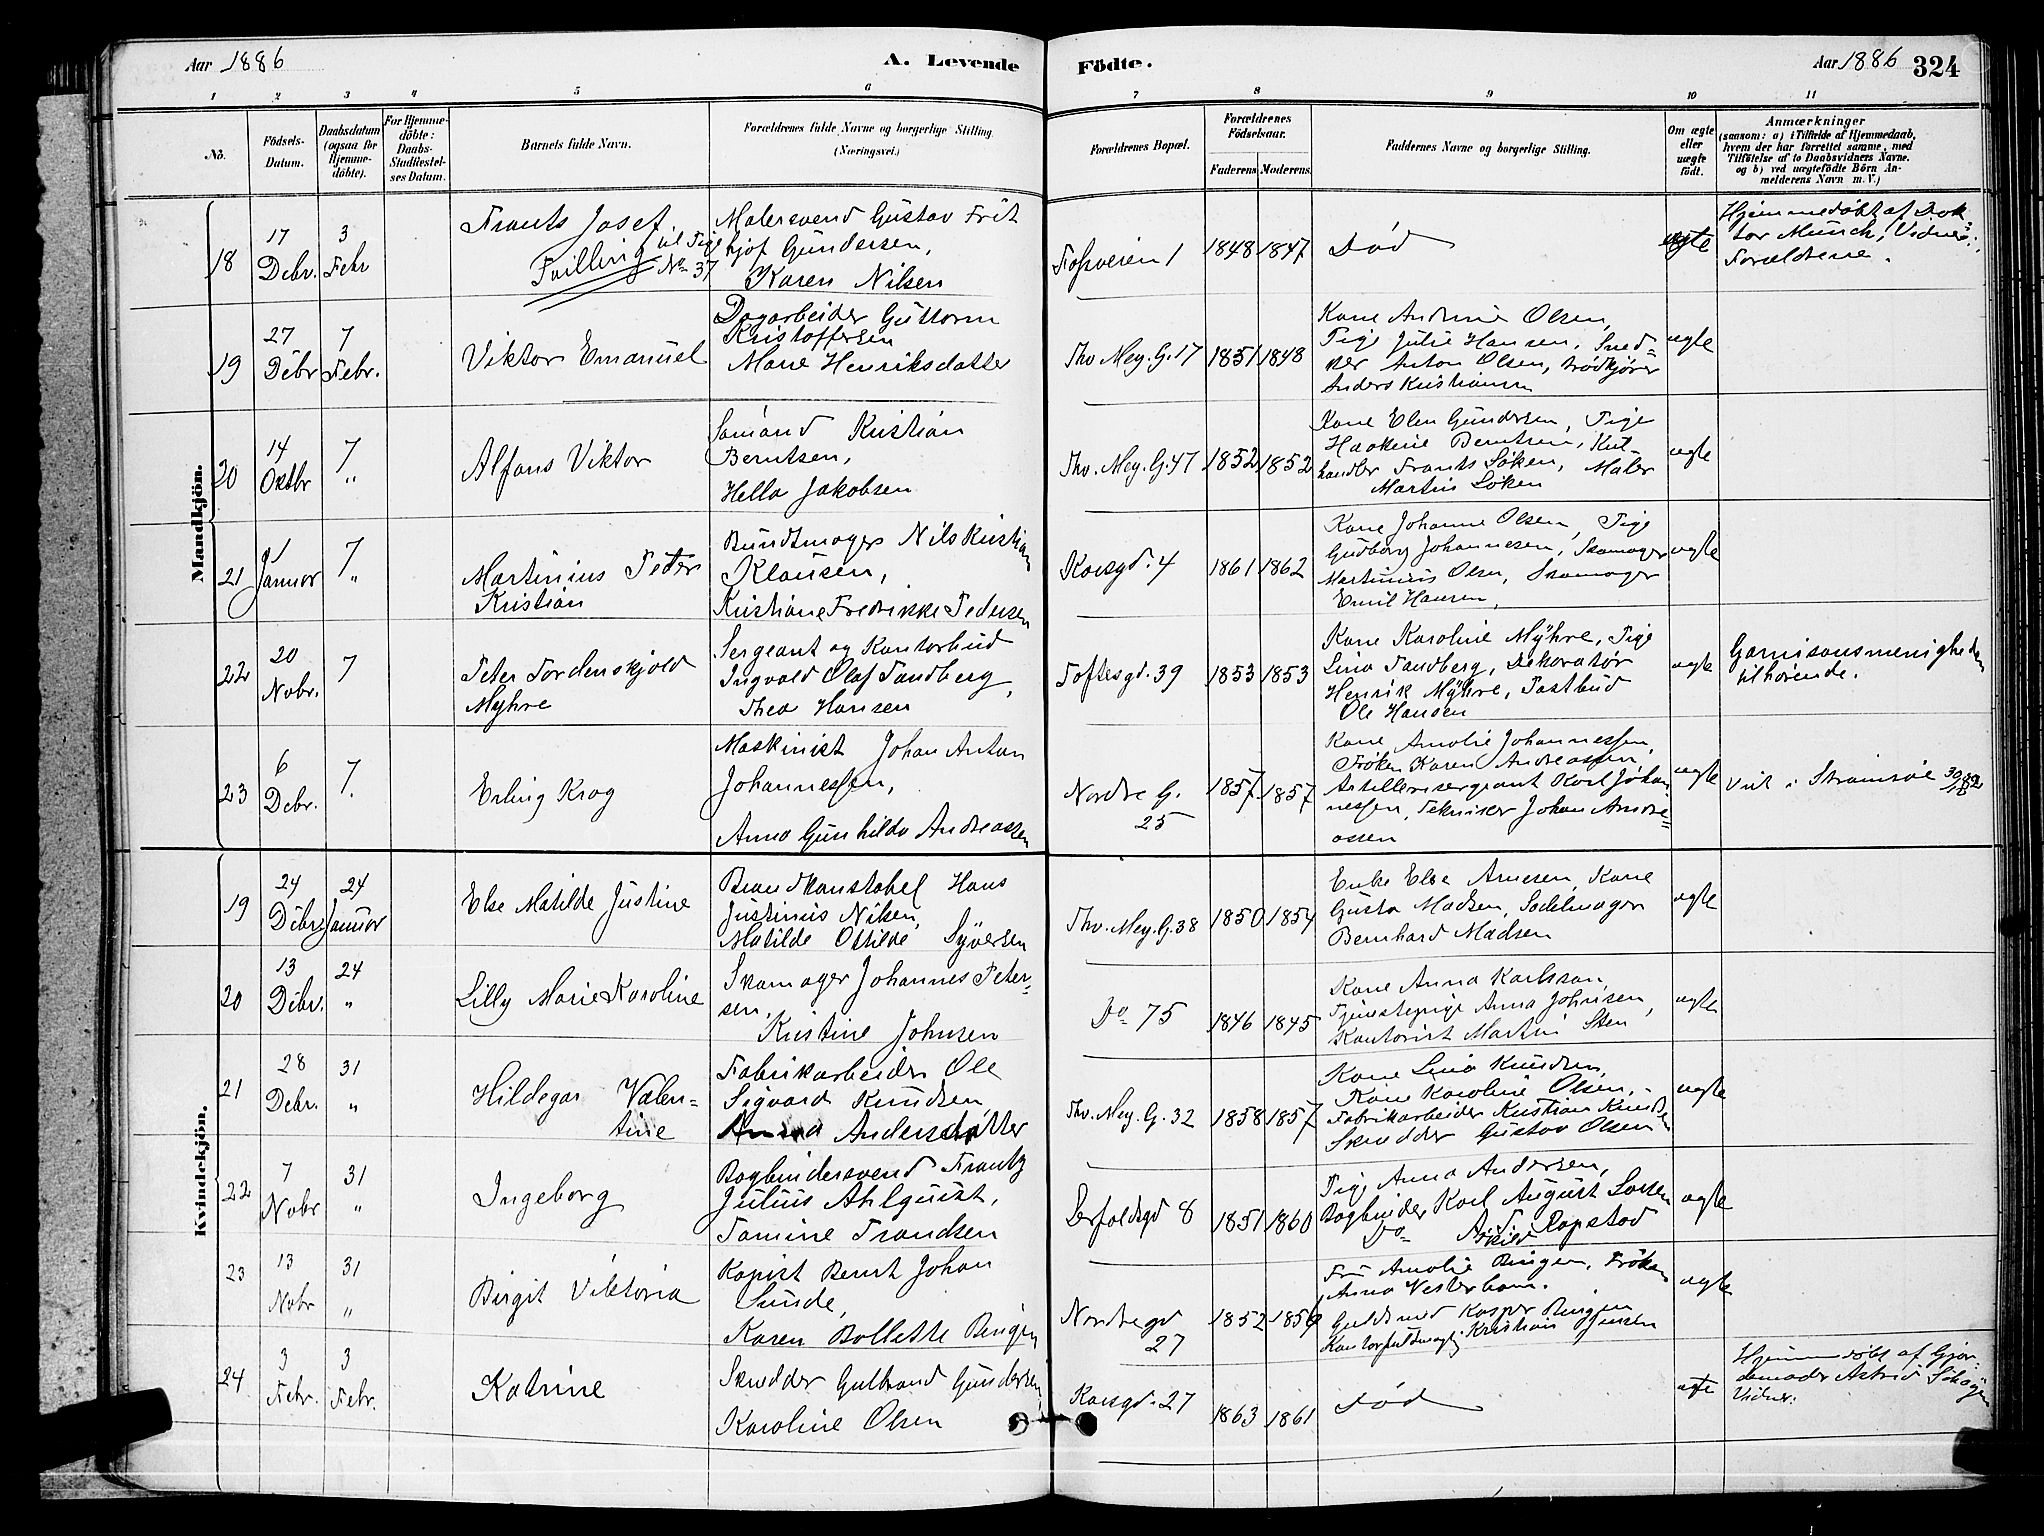 Aar 1886
A. Levende
Födte.
Aar 1886
324
1 2 3 4 5 6 7 8 9 10 11
No.
Födsels-
Datum.
Daabsdatum
(ogsaa for
Hjemme-
döbte).
For Hjemme-
döbte:
Daabs-
Stadfæstel-
ses Datum.
Barnets fulde Navn.
Forældrenes fulde Navne og borgerlige Stilling.
(Næringsvei.)
Forældrenes Bopæl.
Forældrenes
Födselsaar.
Faderens. Moderens.
Faddernes Navne og borgerlige Stilling.
Om ægte
eller
uægte
födt.
Anmærkninger
(saasom: a) i Tilfælde af Hjemmedaab,
hvem der har forrettet samme, med
Tilföielse af to Daabsvidners Navne.
og b) ved uægtefödte Börn An-
melderens Navn m. V.)
Mandkjön.
18
17
Debr.
3
Febr
Frants Josef
Tvilling til Pige
No 37
Malersvend Gustav Frit
hjof Gundersen,
Karen Nilsen
Fossveien 1
1848 1847
Död
ægte
Hjemmedöbt af Dok
tor Münch, Vidner:
Forældrene.
19
27
Debr
7
Febr.
Viktor Emanuel
Dagarbeider Guttorm
Kristoffersen
Marie Henriksdatter
Thv. Mey. G. 17
1851 1848
Kone Andrine Olsen,
Pige Julie Hansen, Sned-
ker Anton Olsen, Brödkjörer
Anders Kristiansen
ægte
20
14
Oktbr
7
"
Alfons Viktor
Sömand Kristian
Berntsen,
Hella Jakobsen
Thv. Mey. G. 47
1852 1852
Kone Elen Gundersen, Pige
Haakine Berntsen, Kul-
handler Frants Löken, Maler
Martin Löken
ægte
21
1
Januar
7
"
Martinius Peder
Kristian
Bundtmager Nils Kristian
Klausen,
Kristiane Fredrikke Pedersen
Korsgd. 4
1861 1862
Kone Johanne Olsen, Pige
Gudborg Johannesen, Skomager
Martinius Olsen, Skomager
Emil Hansen,
ægte
22
20
Nobr.
7
Peter Tordenskjold
Myhre
Sergeant og Kontorbud
Ingvald Olaf Sandberg,
Thea Hansen
Toftesgd. 39
1853 1853
Kone Karoline Myhre, Pige
Lina Sandberg, Dekoratør
Henrik Myhre, Postbud
Ole Hansen
ægte
Garnisonsmenigheden
tilhörende.
23
6
Debr.
7.
Erling Krog
Maskinist Johan Anton
Johannessen,
Anna Gunhilda Andreassen
Nordre G.
25
1857 1857
Kone Amalie Johannessen,
Fröken Karen Andreassen
Artillerisergeant Karl Johan
nessen, Tekniker Johan Andre-
assen
ægte
Viet i Strömsöe
Kvindekjön.
19
24
Debr
24
Januar
Else Matilde Justine
Brandkonstabel Hans
Justinus Nilsen,
Matilde Otilde Syversen
Thv. Mey. G. 38
1850 1854
Enke Else Arnesen, Kone
Gusta Madsen, Sadelmager
Bernhard Madsen
ægte
20
13
Debr.
24
"
Lilly Marie Karoline
Skomager Johannes Peter-
sen,
Kristine Johnsen
Do 75
1846 1845
Kone Anna Karlsson,
Tjenestepige Anna Johnsen,
Kontorist Martin Sten
ægte
21
28
Debr.
31
"
Hildegar Valen-
tine
Fabrikarbeider Ole
Sigvard Knudsen,
Anna Andersdatter
Thv. Mey. G. 32
1858 1857
Kone Lina Knudsen,
Kone Karoline Olsen,
Fabrikarbeider Kristian Knudsen
Skrædder Gustav Olsen
ægte
22
7
Nobr
31
"
Ingeborg
Bogbindersvend Frantz
Julius Ahlquist,
Tomine Trondsen
Herfoldsgd 8
1851 1860
Pige Anna Andersen,
Bogbinder Karl August Larsen
Do Askild Ropstad
ægte
23
13
Nobr
31
"
Birgit Viktoria
Kopist Bernt Johan
Sunde,
Karen Bollette Bingen
Nordregd
27
1852 1856
Fru Amalie Bingen, Fröken
Anna Vesterham.
Guldsmed Kasper Bingen
Kontorfuldmægtig Kristian Jensen
ægte
24
3
Febr.
3
Febr.
Katrine
Skrædder Gulbrand Gundersen
Karoline Olsen
Korsgd. 27
1863 1861
Död
ægte
Hjemmedöbt af Gjor-
demoder Astrid
Vidner.